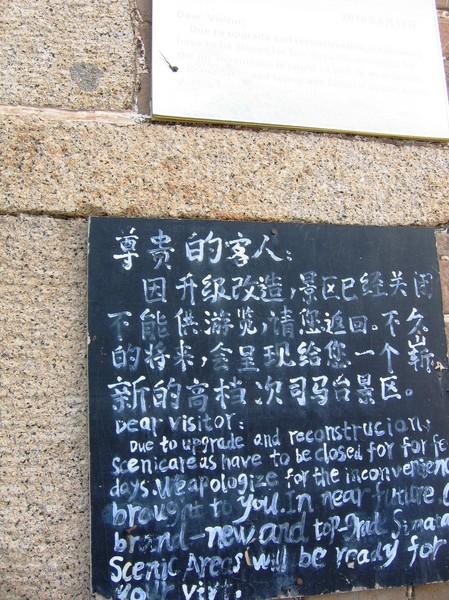 Dear Visitor:
Due to upgrade and
尊贵的客人:
因升级改造,景区已经关闭
不能供游览,请您返回。不久
的将来,会呈现给您一个崭
新的高档次司马台景区。
Dear visitor:
Due to upgrade and reconstrucion,
scenicareas have to be closed for for fe
days. We apologize for the inconvenien
brought to you. In near future.
brand-new and top-Grade Simata
Scenic Areas will be ready for
your visit.